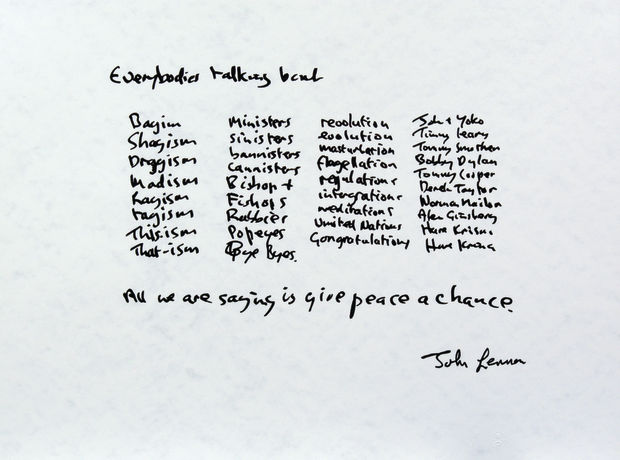 Everybodies talking bout
Bagism
Shagism
Draggism
Madism
Ragism
Tagism
This-ism
That-ism
Ministers
sinisters
bannisters
Cannisters
Bishop +
Fishops
Rabbies
Popeyes
Bye Byes.
revolution
evolution
masturbation
flagellation
regulations
integrations
meditations
United Nations
Congratulations
John + Yoko
Timmy Leary
Tommy Smothers
Bobby Dylan
Tommy Cooper
Derek Taylor
Norman Mailer
Alan Ginsberg
Hare Krisna
Hare Krsna
All we are saying is give peace a chance.
John Lennon